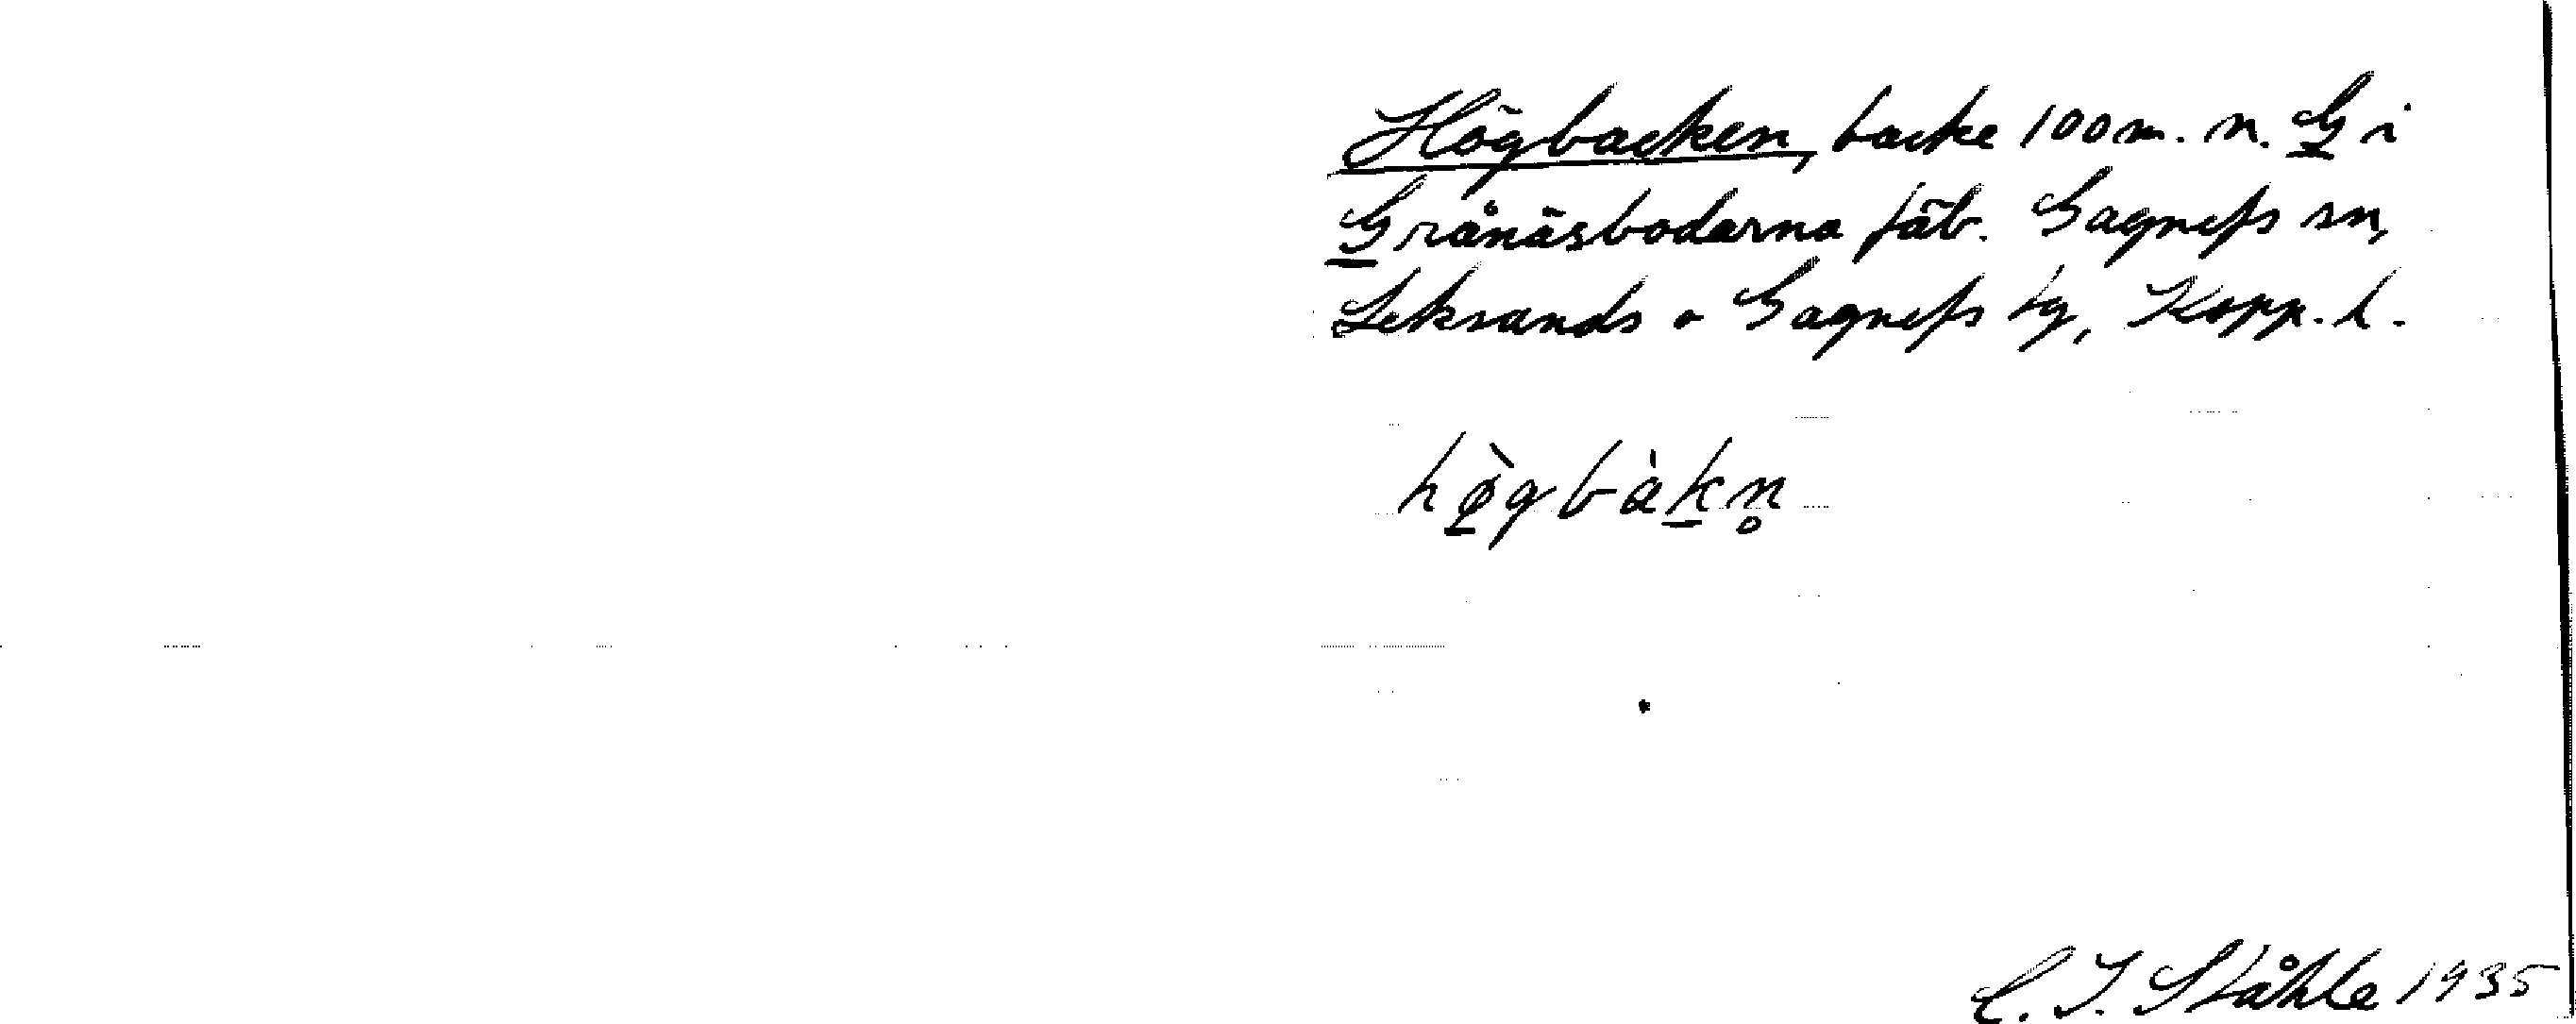 Högbacken, backe 100 m. n. G i
Grånäsbodarna fäb. Gagnefs sn,
Leksands o Gagnefs tg, Kopp. l.
hø̱̀gbàḵn̥
C. I. Ståhle 1935